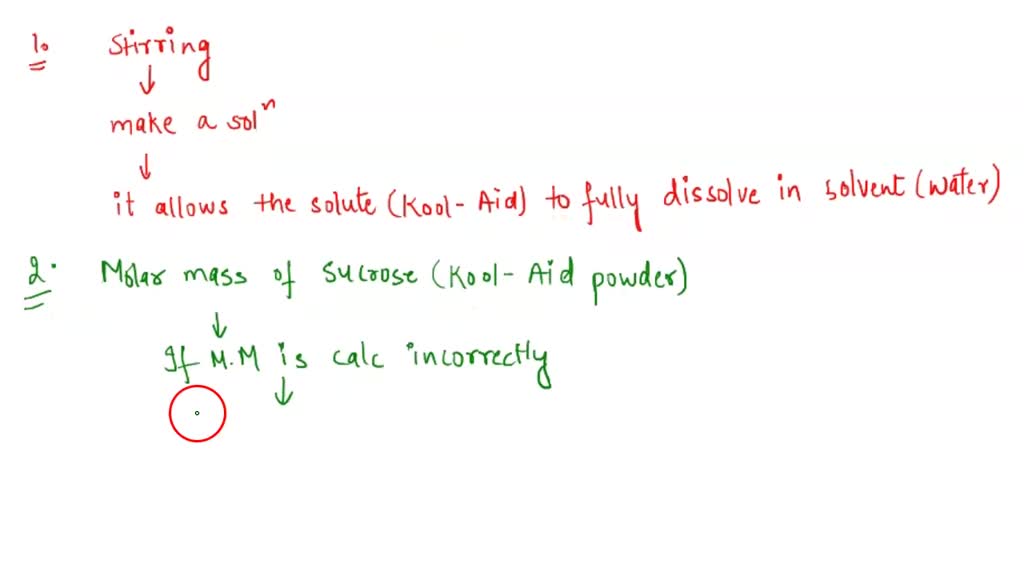 1. Stirring
↓
make a solⁿ
↓
it allows the solute (Kool-Aid) to fully dissolve in solvent (water)
2. Molar mass of sucrose (Kool-Aid powder)
↓
If M.M is calc incorrectly
↓